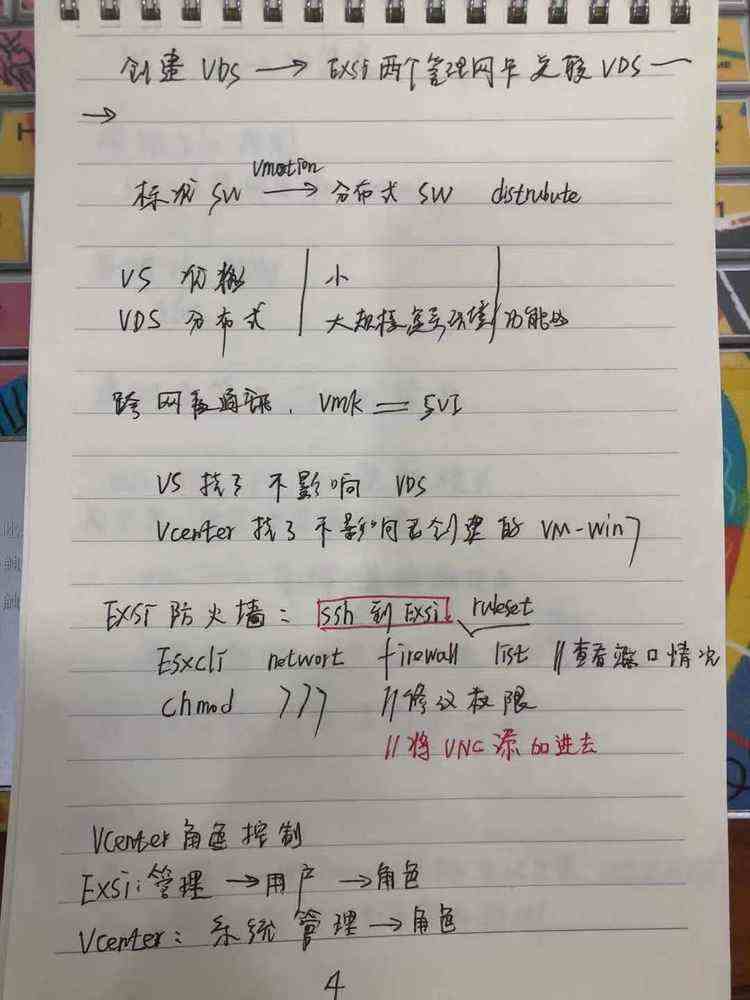 创建 VDS → EXSi 两个管理网卡关联 VDS —
→
Vmotion
标准 SW → 分布式 SW distrubute
VS | 小
VDS 分布式 | 大规模 | 功能
跨网段通讯. Vmk = SVI
VS 挂了 不影响 VDS
Vcenter 挂了 不影响已创建的 VM-win7
EXSI 防火墙: ssh 到 EXSi ruleset
Esxcli networt firewall list //查看端口情况
chmod 777 //修改权限
//将 VNC 添加进去
Vcenter 角色控制
EXSi: 管理 → 用户 → 角色
Vcenter: 系统管理 → 角色
4